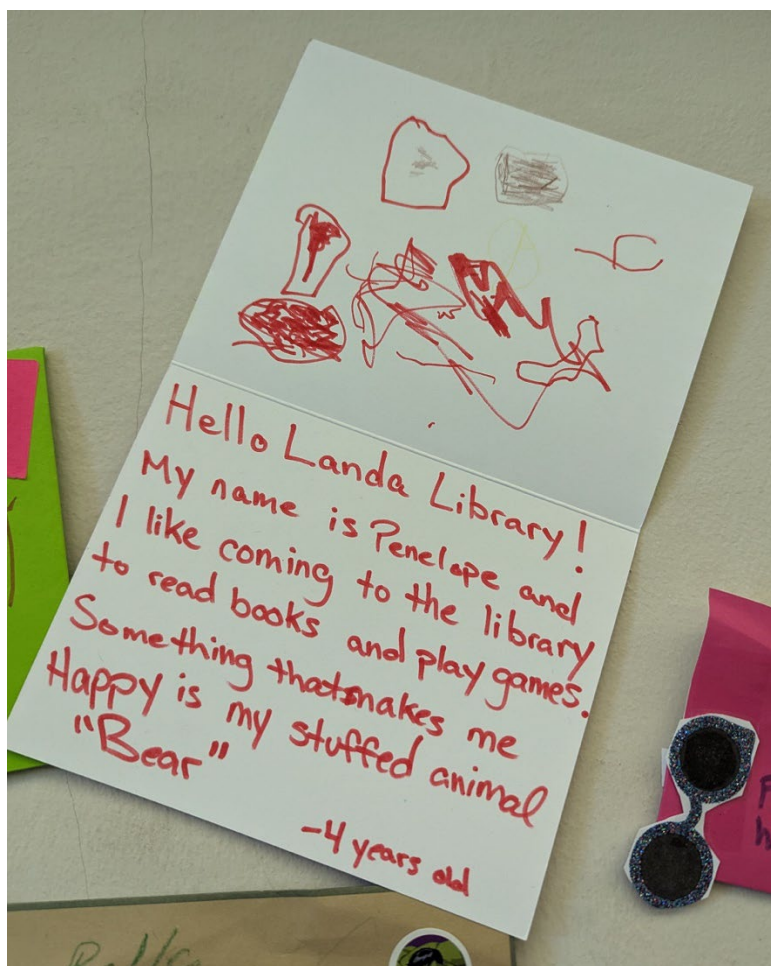 Hello Landa Library!
My name is Penelope and
I like coming to the library
to read books and play games.
Something that makes me
Happy is my stuffed animal
"Bear"
-4 years old